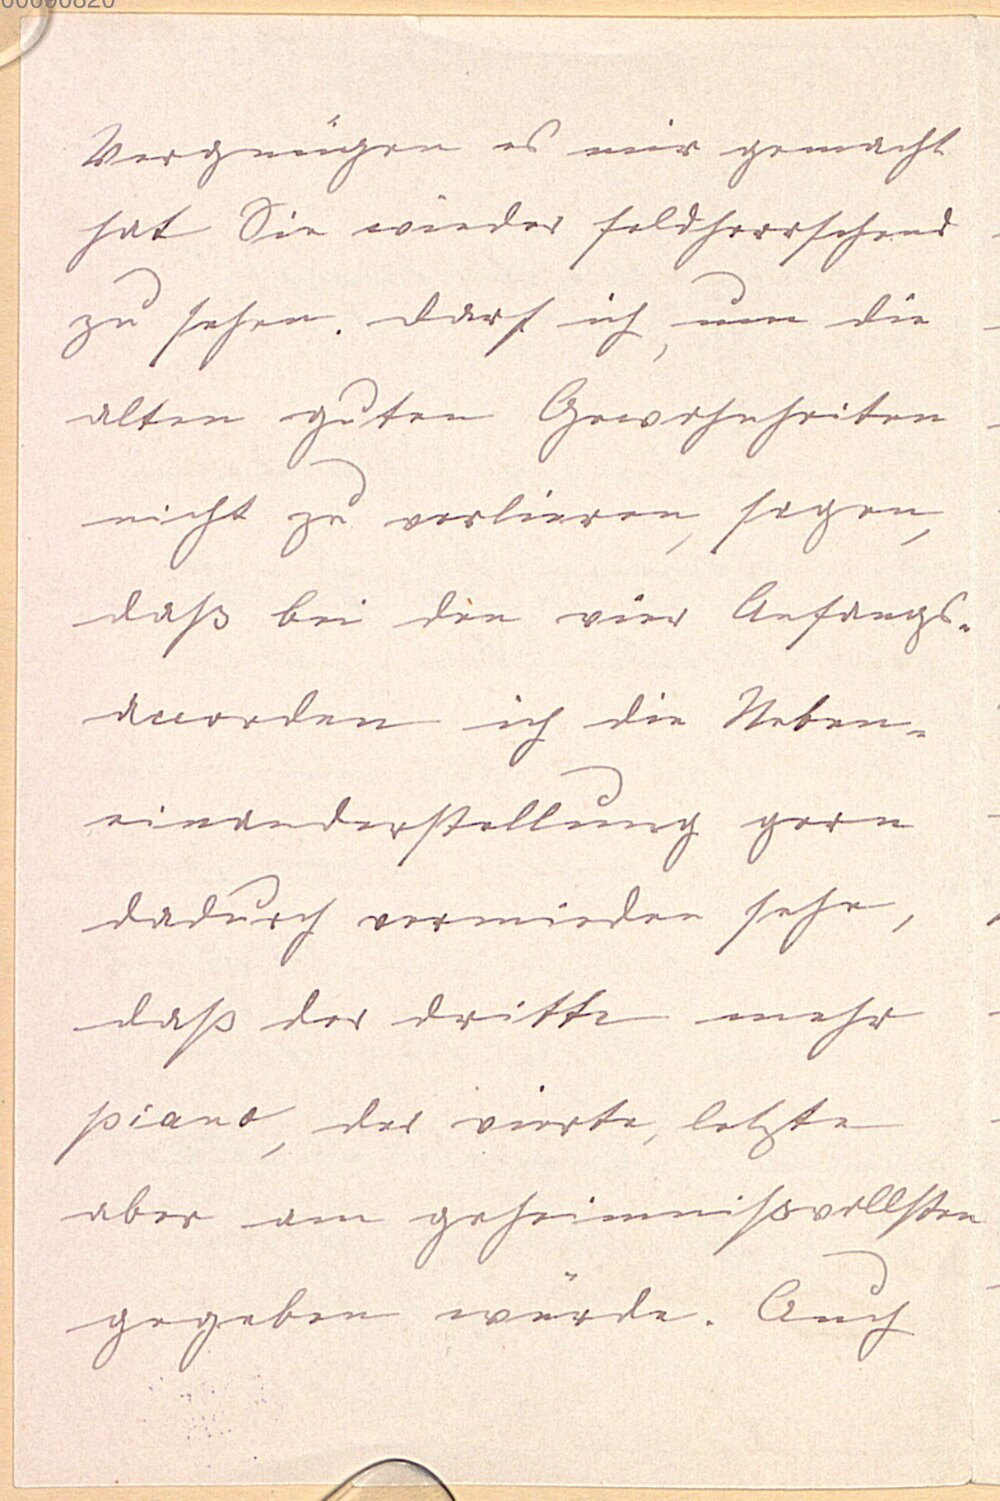 00090820
Vergnügen es mir gemacht
hat Sie wieder feldherrschend
zu sehen. Darf ich, um die
alten guten Gewohnheiten
nicht zu verlieren, sagen,
daß bei den vier Anfangs-
accorden ich die Neben-
einanderstellung gern
dadurch vermieden sehe,
daß der dritte mehr
piano, der vierte, letzte
aber am geheimnißvollsten
gegeben würde. Auch